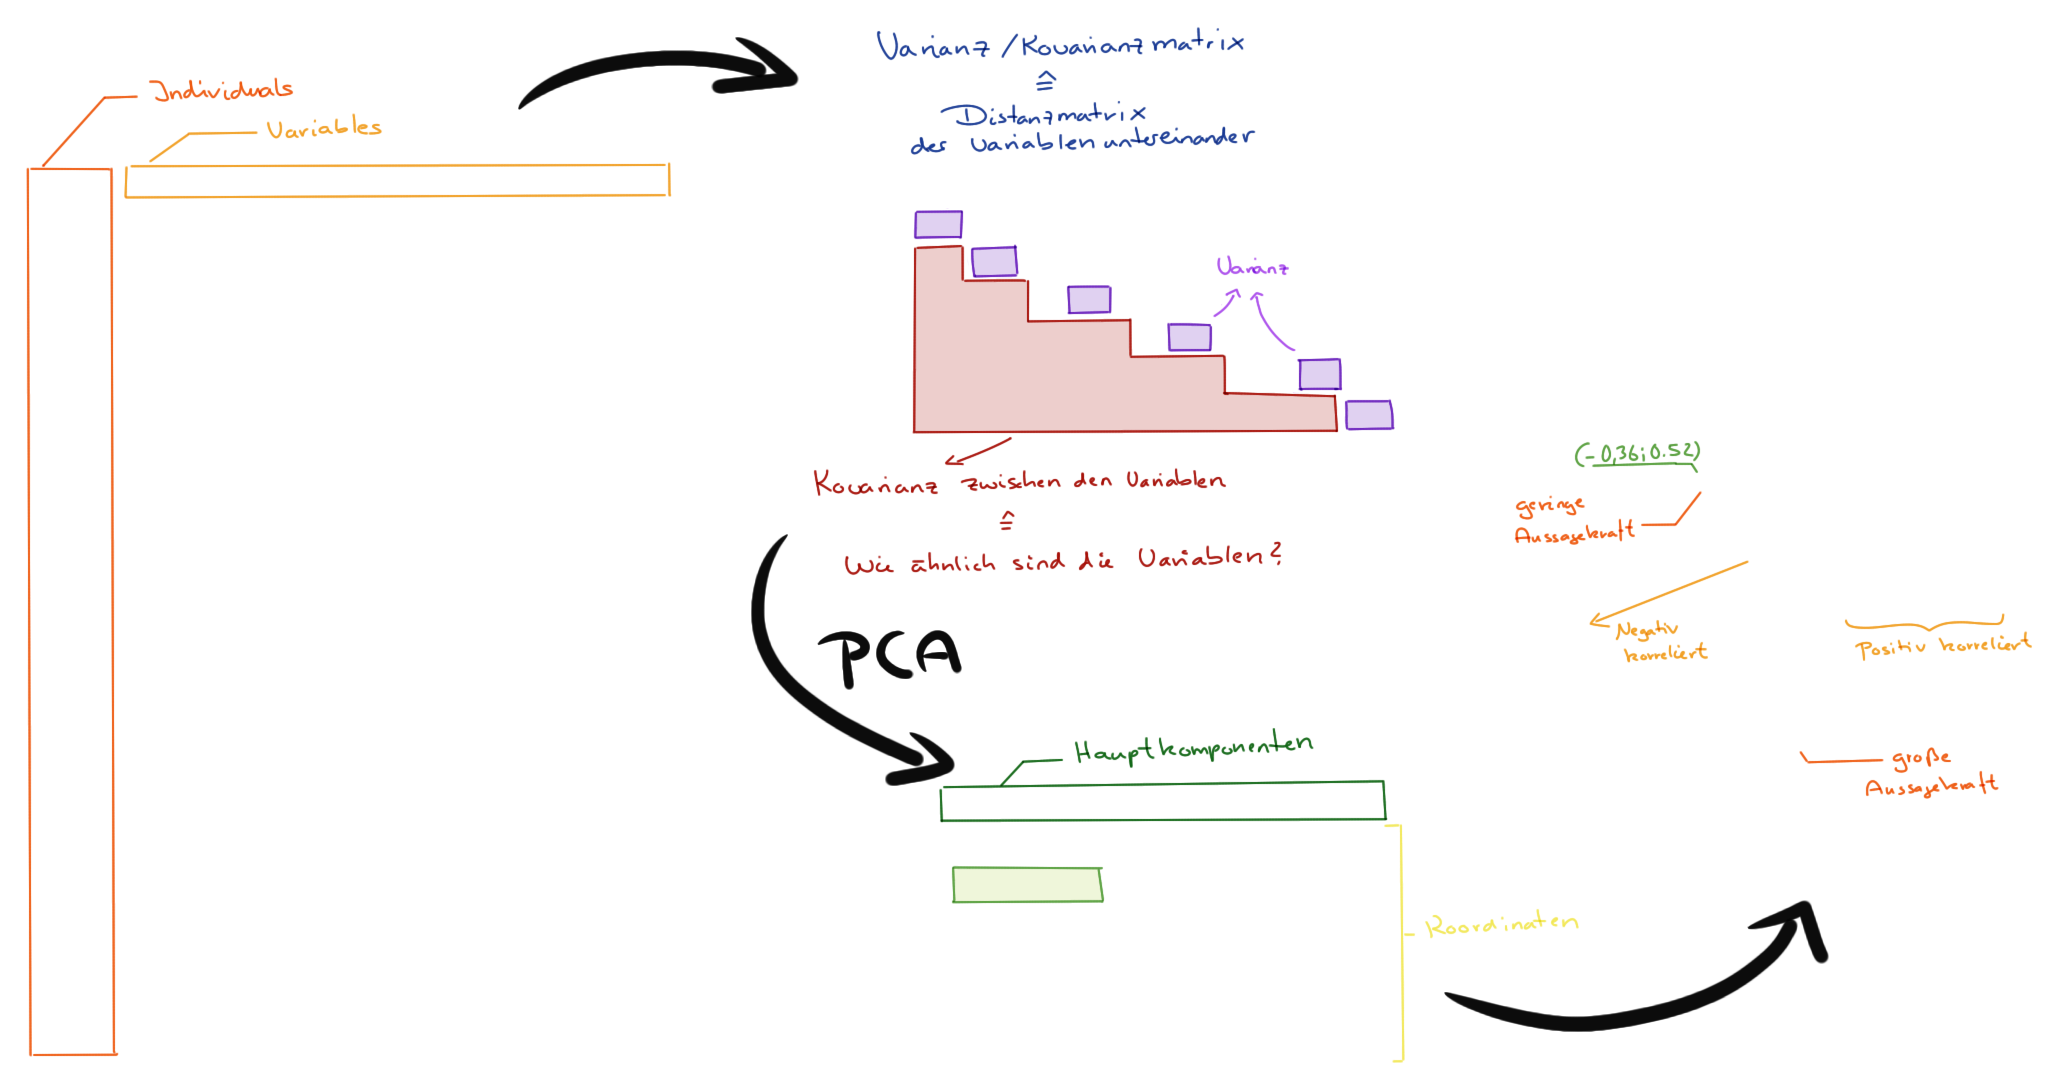 Individuals
Variables
Varianz / Kovarianzmatrix
≙
Distanzmatrix
der Variablen untereinander
Varianz
Kovarianz zwischen den Variablen
≙
Wie ähnlich sind die Variablen?
PCA
Hauptkomponenten
Koordinaten
(-0,36;0.52)
geringe
Aussagekraft
Negativ
korreliert
Positiv korreliert
große
Aussagekraft